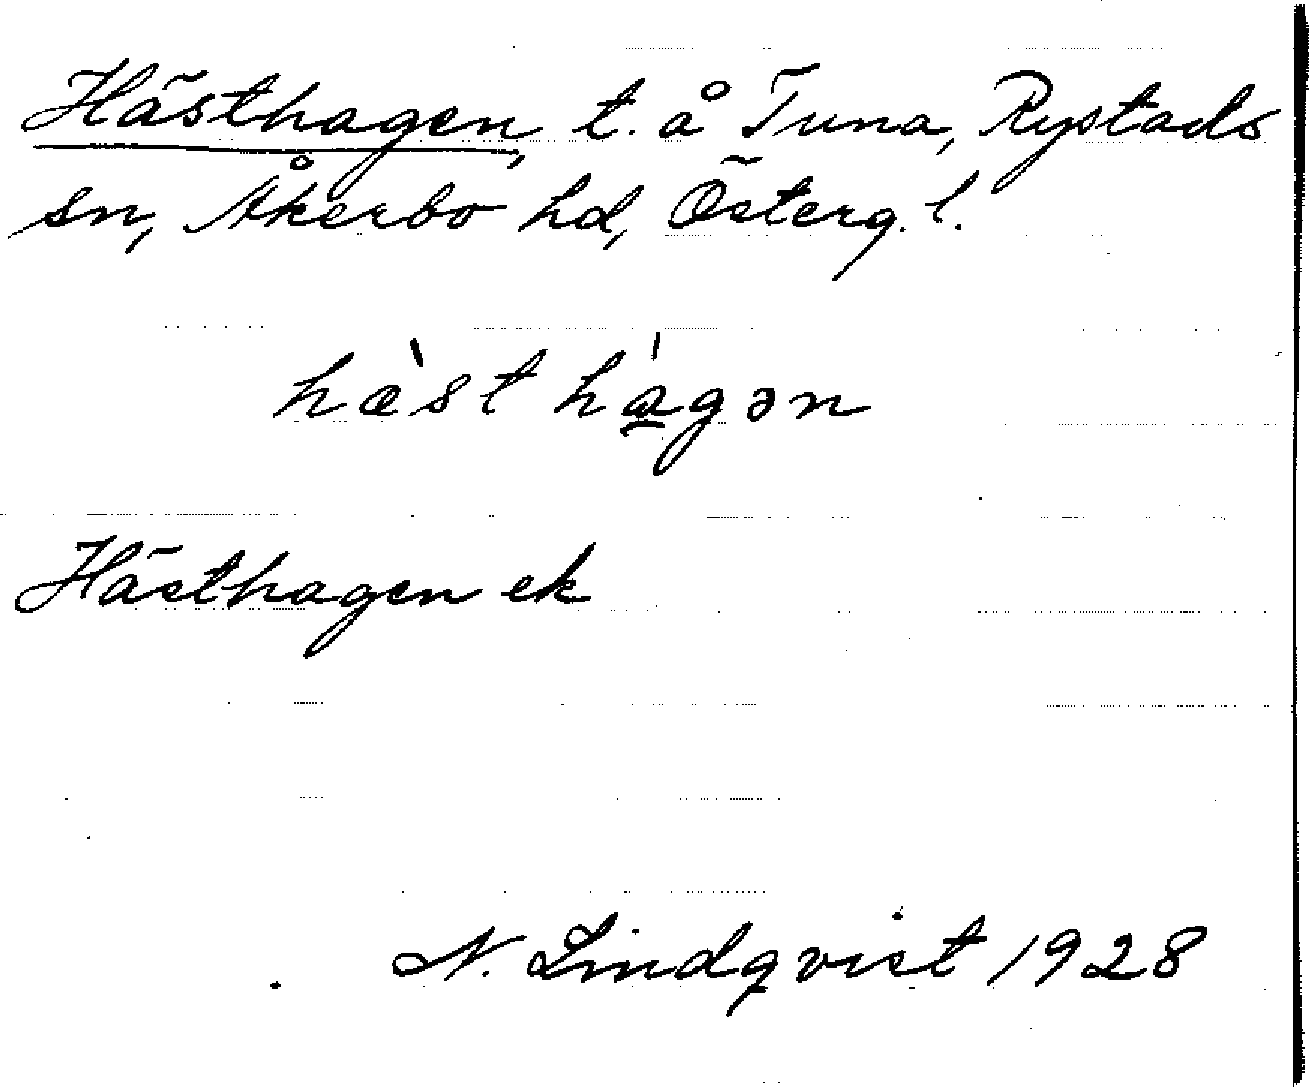 Hästhagen, t. å Tuna, Rystads
sn, Åkerbo hd, Österg. l.
hæ̀st há̱gən
Hästhagen ek
N. Lindqvist 1928